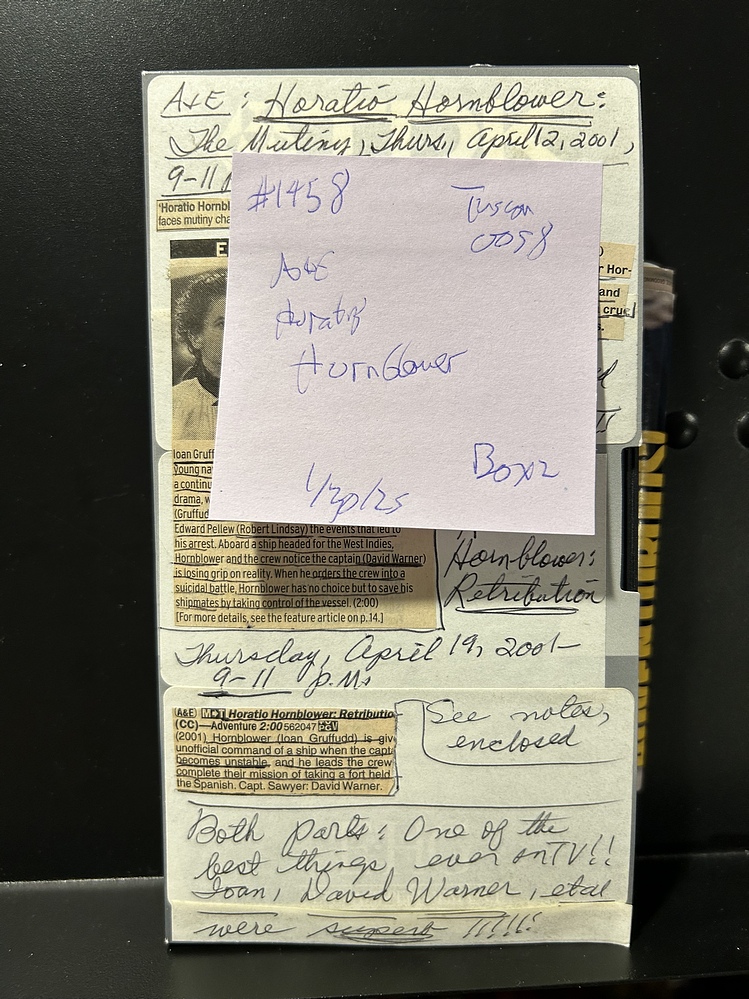 A&E: Horatio Hornblower:
The Mutiny, Thurs., April 12, 2001,
9-11 p
'Horatio Hornbl
faces mutiny cha
E
r Hor-
and
cruel
#1458
Tuscan
0058
A&E
Horatio
Hornblower
1/2p/2s
Box 2
Ioan Gruff
young na
a continu
drama, w
(Gruffud
Edward Pellew (Robert Lindsay) the events that led to
his arrest. Aboard a ship headed for the West Indies,
Hornblower and the crew notice the captain (David Warner)
is losing grip on reality. When he orders the crew into a
suicidal battle, Hornblower has no choice but to save his
shipmates by taking control of the vessel. (2:00)
[For more details, see the feature article on p.14.]
Hornblower:
Retribution
Thursday, April 19, 2001-
9-11 p.m.
(A&E) Horatio Hornblower: Retributio
(CC)—Adventure 2:00 562047
(2001) Hornblower (Ioan Gruffudd) is giv
unofficial command of a ship when the capt
becomes unstable, and he leads the crew
complete their mission of taking a fort held
the Spanish. Capt. Sawyer: David Warner.
See notes,
enclosed
Both parts: One of the
best things ever on TV!!
Ioan, David Warner, et al
were superb !!!!!!